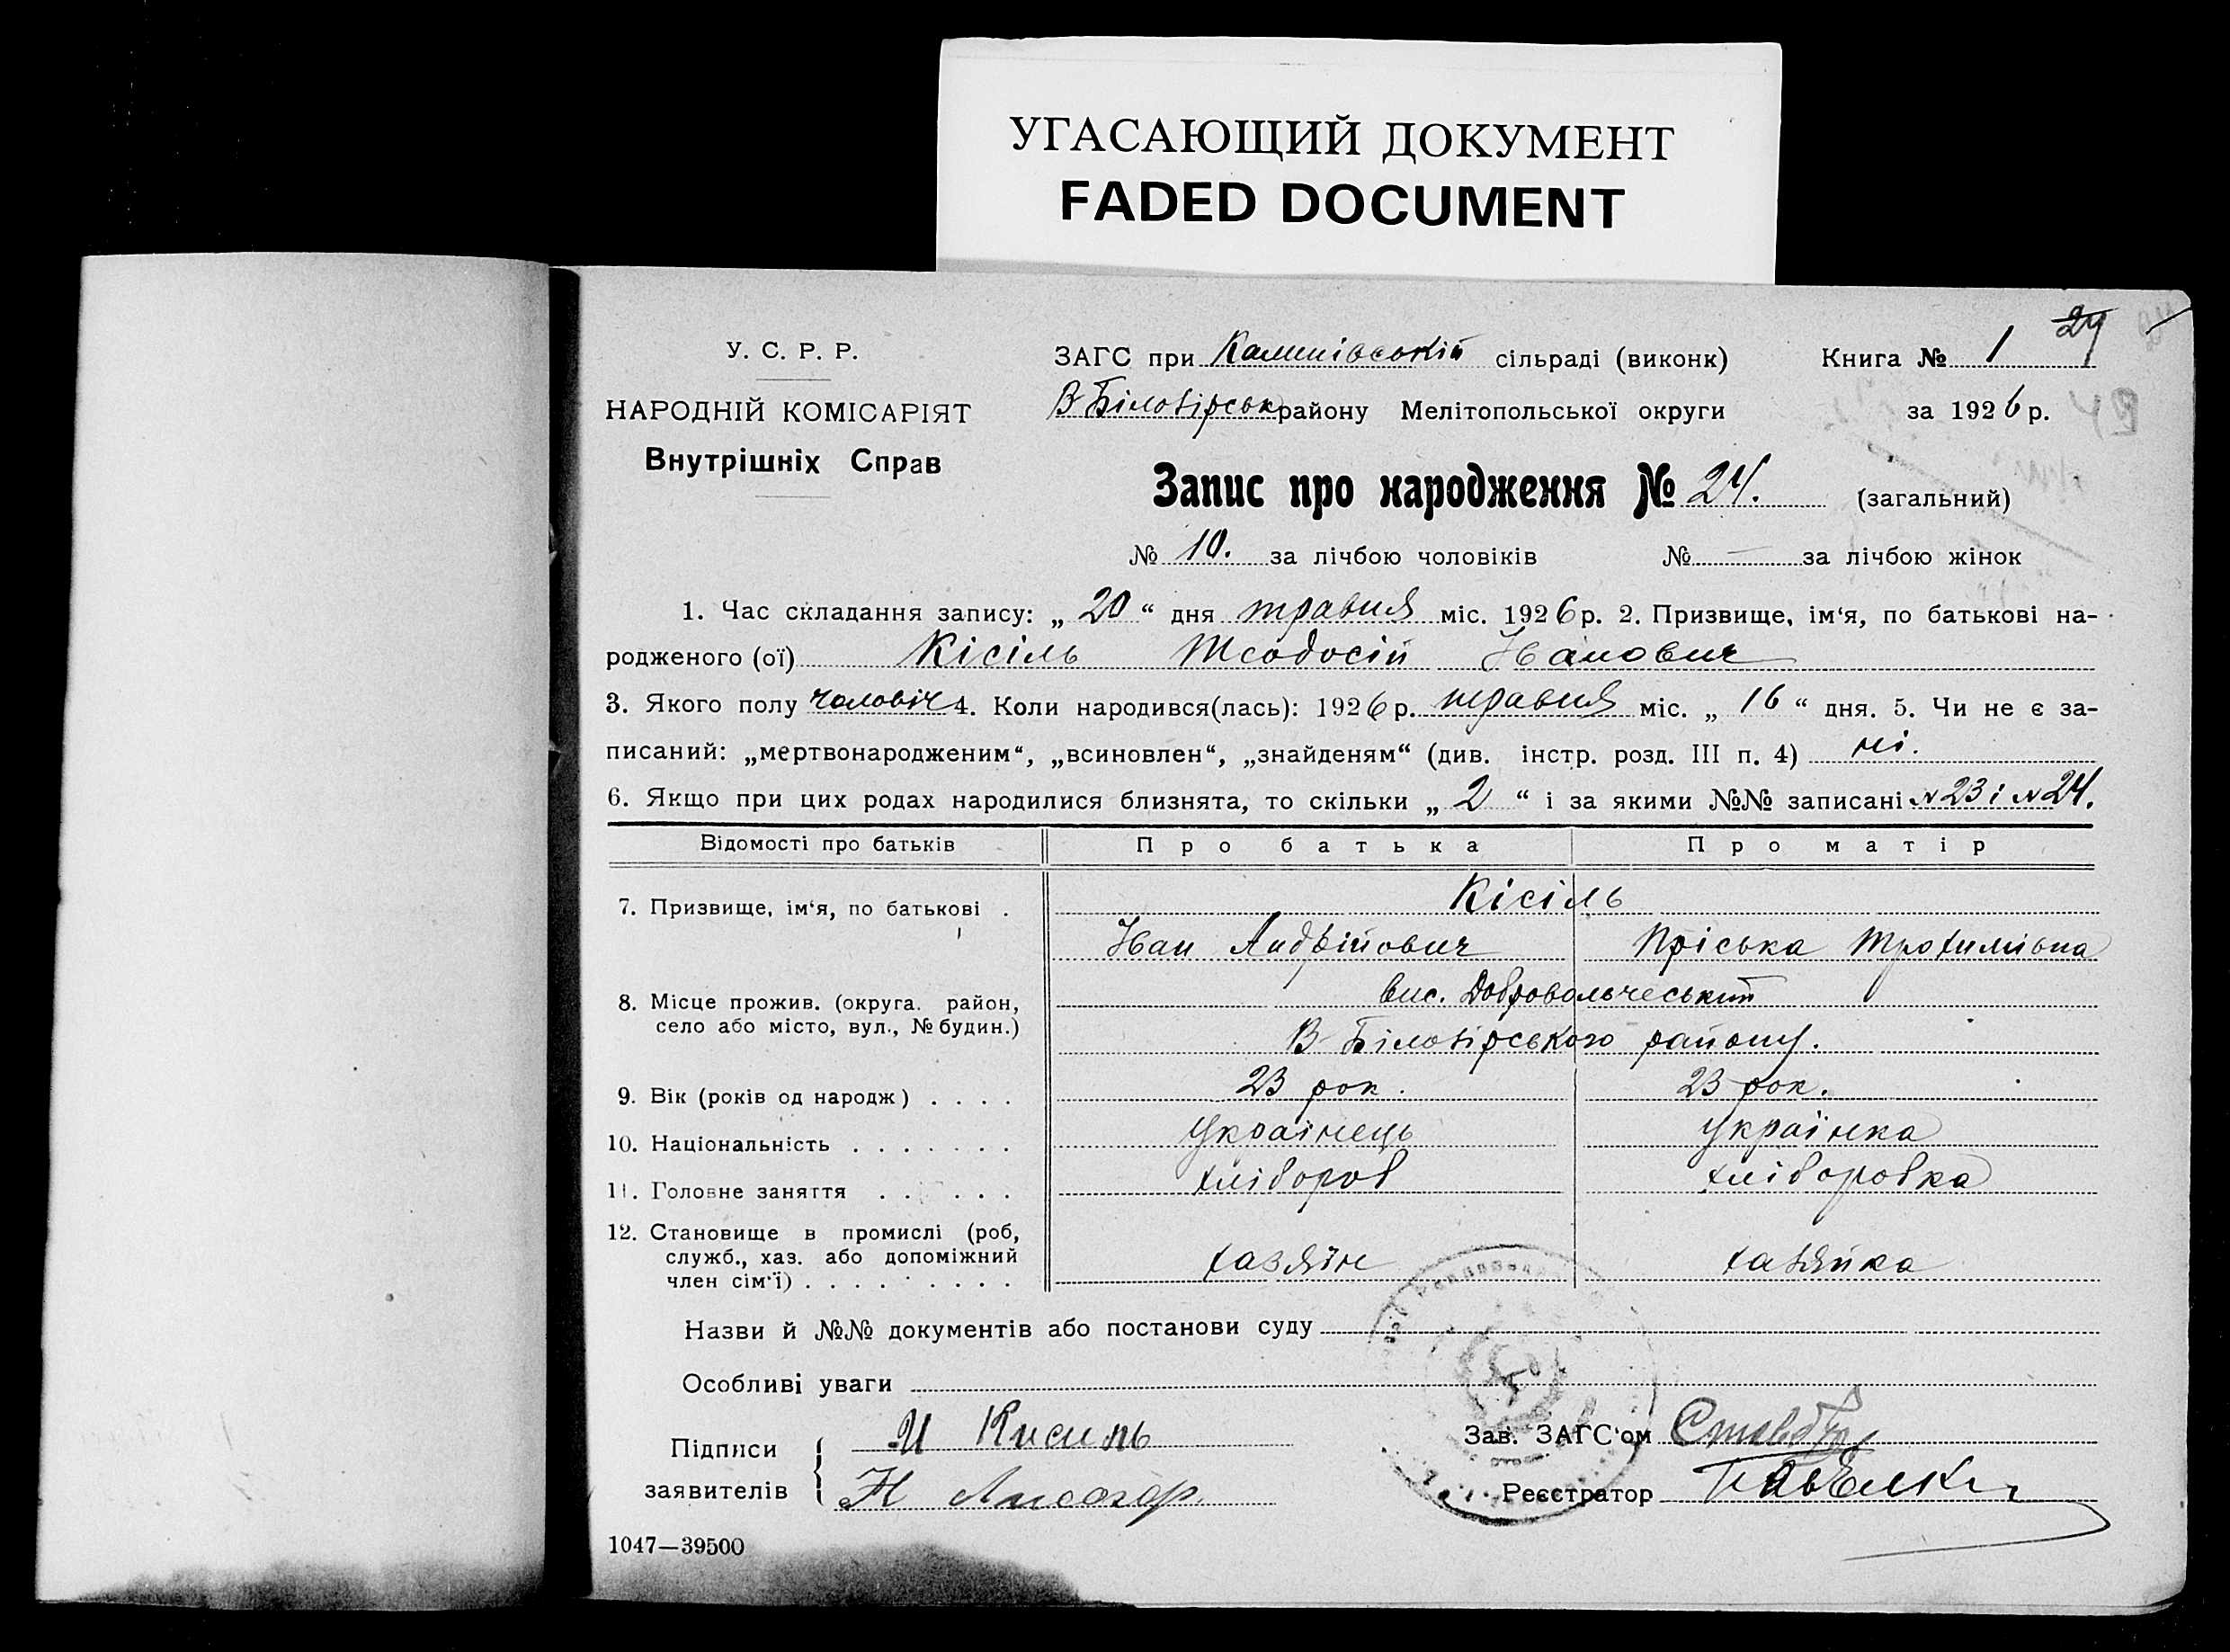 УГАСАЮЩИЙ ДОКУМЕНТ
FADED DOCUMENT
У. С. Р. Р.
НАРОДНІЙ КОМІСАРІЯТ
Внутрішніх Справ
24
ЗАГС при Калинівській сільраді (виконк) Книга № 1
В Білозірськ району Мелітопольської округи за 1926 р.
Запис про народження № 24. (загальний)
№ 10. за лічбою чоловіків № — за лічбою жінок
1. Час складання запису: „ 20 “ дня травня міс. 1926 р. 2. Призвище, ім‘я, по батькові на-
родженого (ої) Кісіль Теодосій Іванович
3. Якого полу чоловіч 4. Коли народився(лась): 1926 р. травня міс. „ 16 “ дня. 5. Чи не є за-
писаний: „мертвонародженим“, „всиновлен“, „знайденям“ (див. інстр. розд. III п. 4) ні.
6. Якщо при цих родах народилися близнята, то скільки „ 2 “ і за якими №№ записані № 23 і № 24.
Відомості про батьків Про батька Про матір
7. Призвище, ім‘я, по батькові . Кісіль
Іван Андрійович Пріська Трохимівна
8. Місце прожив. (округа. район, село або місто, вул., № будин.) вис. Добровольчеський
В-Білозірського району.
9. Вік (років од народж) . . . . 23 рок. 23 рок.
10. Національність . . . . . . . Українець Українка
11. Головне заняття . . . . . . хлібороб хліборобка
12. Становище в промислі (роб,
служб., хаз. або допоміжний
член сім‘ї) . . . . . . . . . хазяїн хазяйка
Назви й №№ документів або постанови суду
Особливі уваги
Підписи И Кисиль Зав. ЗАГС‘ом
заявителів Н Лисогор. Реєстратор
1047—39500